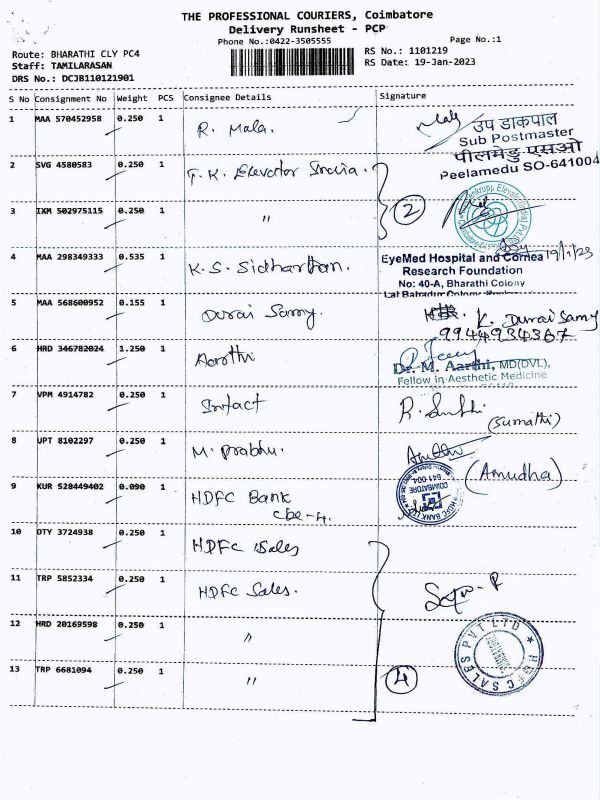 THE PROFESSIONAL COURIERS, Coimbatore
Delivery Runsheet - PCP
Phone No.:0422-3505555
Page No.:1
Route: BHARATHI CLY PC4
RS No.: 1101219
Staff: TAMILARASAN
RS Date: 19-Jan-2023
DRS No.: DCJB110121901
S No Consignment No Weight PCS Consignee Details Signature
1 MAA 570452958 0.250 1 R. Mala.
उप डाकपाल
Sub Postmaster
पीलमेडु एसओ
Peelamedu SO-641004
2 SVG 4580583 0.250 1 T.K. Elevator India.
3 IXM 502975115 0.250 1 "
2
19/1/23
4 MAA 298349333 0.535 1 K.S. Sidharthan.
EyeMed Hospital and Cornea
Research Foundation
No: 40-A, Bharathi Colony
Lal Bahadur Colony
5 MAA 568600952 0.155 1 Durai Samy.
K. Durai Samy
9944934367
6 HRD 346782024 1.250 1 Aarthi
Dr. M. Aarthi, MD(DVL),
Fellow in Aesthetic Medicine
7 VPM 4914782 0.250 1 Intact
(Sumathi)
8 UPT 8102297 0.250 1 M. Prabhu.
(Amudha)
9 KUR 528449402 0.090 1 HDFC Bank
Cbe-4.
COIMBATORE
641 004
HDFC BANK
10 OTY 3724938 0.250 1 HDFC Sales
11 TRP 5852334 0.250 1 HDFC Sales.
12 HRD 20169598 0.250 1 "
HDFC SALES PVT LTD
13 TRP 6681094 0.250 1 "
4